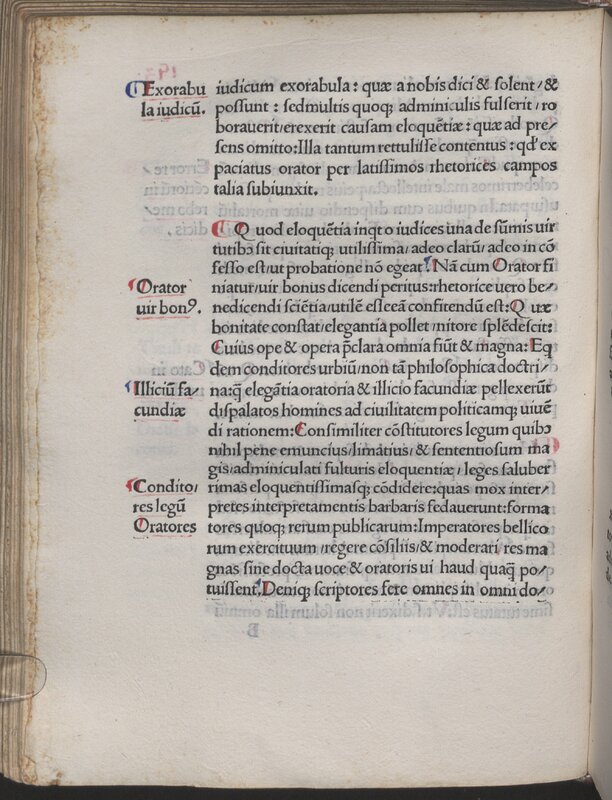 Exorabu
la iudicū.
iudicum exorabula : quæ a nobis dici & solent / &
possunt : sed multis quoq; adminiculis fulserit / ro
borauerit / erexerit causam eloquētiæ : quæ ad pre/
sens omitto: Illa tantum rettulisse contentus : qd' ex
paciatus orator per latissimos rhetorices campos
talia subiunxit.
Quod eloquētia inqt o iudices una de sūmis uir
tutibꝰ sit ciuitatiq; utilissima / adeo clarū / adeo in cō
fesso est / ut probatione nō egeat. Nā cum Orator fi
Orator
uir bonꝰ.
niatur / uir bonus dicendi peritus: rhetorice uero be/
nedicendi sciētia / utilē esse eā confitendū est: Quæ
bonitate constat / elegantia pollet / nitore splēdescit:
Cuius ope & opera p̄clara omnia fiūt & magna: Eq
dem conditores urbiū / non tā philosophica doctri/
Illiciū fa/
cundiæ
na: q̄ elegātia oratoria & illicio facundiæ pellexerūt
dispalatos homines ad ciuilitatem politicamq; uiuē
di rationem: Consimiliter cōstitutores legum quibꝰ
nihil pene emuncius / limatius / & sententiosum ma
gis / adminiculati fulturis eloquentiæ / leges saluber
Condito/
res legū
Oratores
rimas eloquentissimasq; cōdidere: quas mox inter/
pretes interpretamentis barbaris fedauerunt: forma
tores quoq; rerum publicarum: Imperatores bellico
rum exercituum / regere cōsiliis / & moderari res ma
gnas sine docta uoce & oratoris ui haud quaq̄ po/
tuissent. Deniq; scriptores fere omnes in omni do/